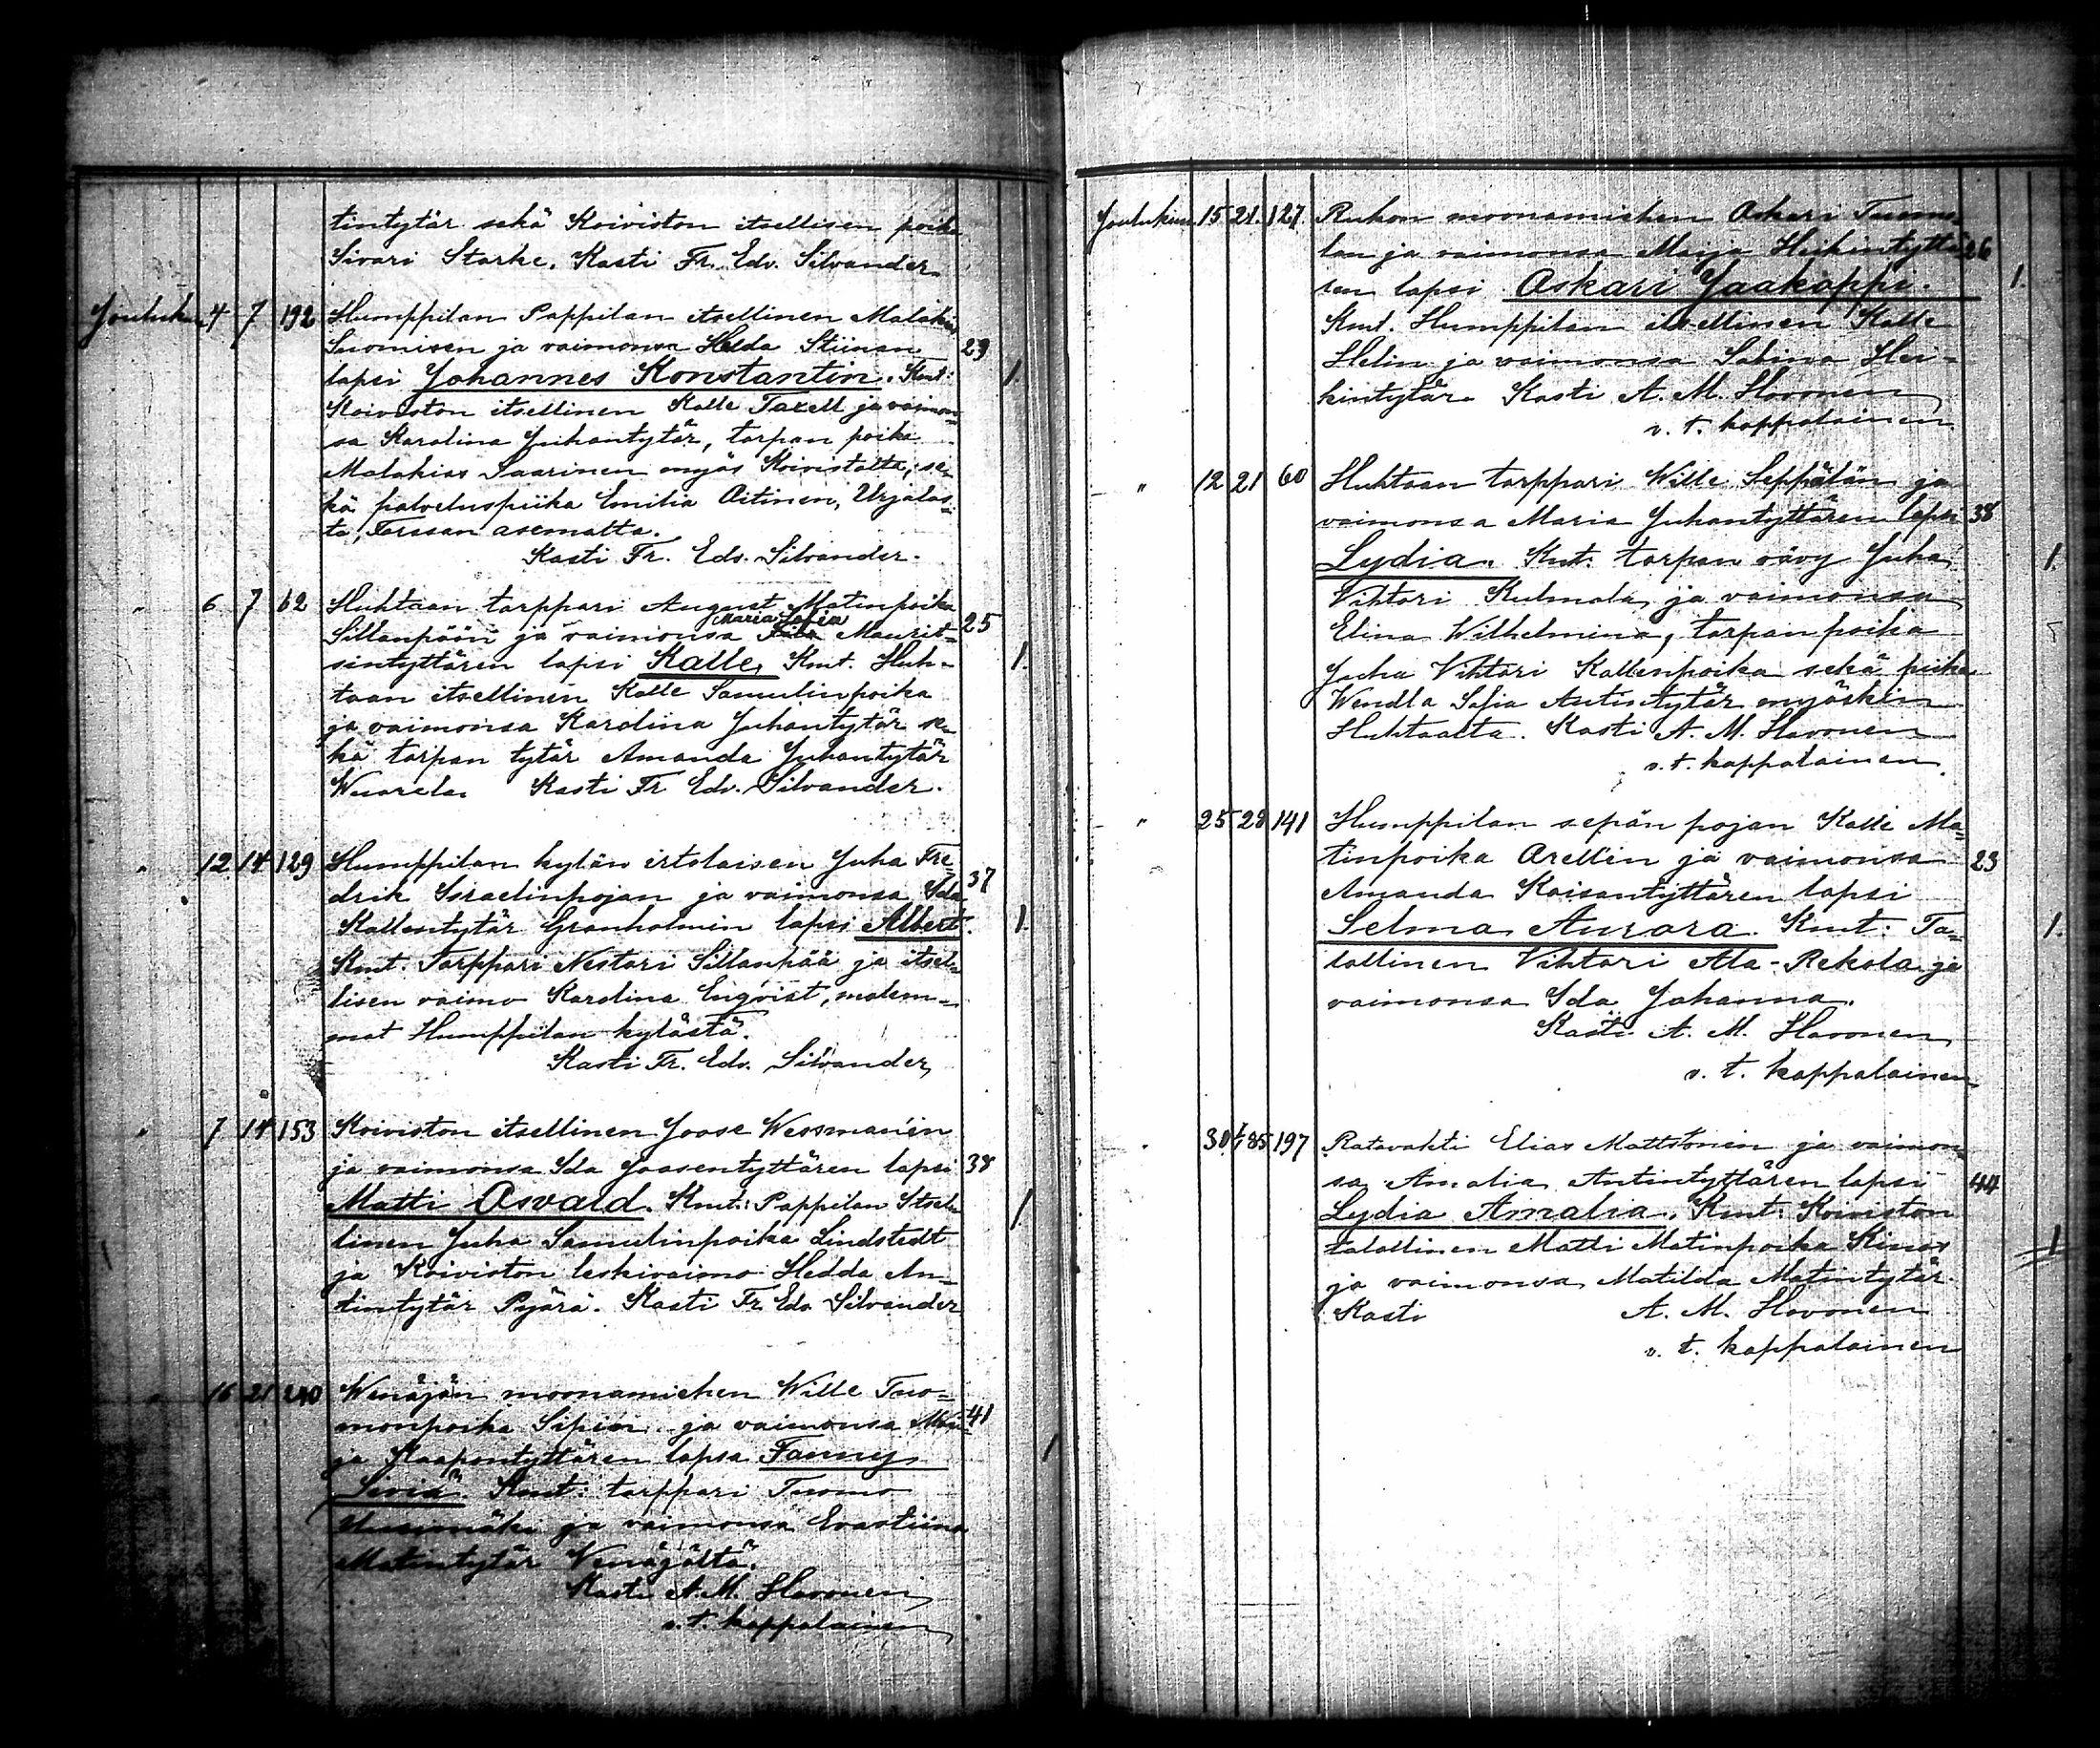 tintytär sekä Koiviston itsellisen poika
Sivari Starke. Kasti Fr. Edv. Silvander.
Jouluku 4 7 192 Humppilan Pappilan itsellinen Malakias
Suomisen ja vaimonsa Hedda Stiinan 29
lapsi Johannes Konstantin. Kmt: 1.
Koiviston itsellinen Kalle Taxell ja vaimon-
sa Karolina Juhantytär, torpan poika
Malakias Saarinen myös Koivistolta, se-
kä palveluspiika Emilia Aitinen, Urjalas-
ta, Forssan asemalta.
Kasti Fr. Edv. Silvander.
" 6 7 62 Huhtaan torppari August Matinpoika
Maria Sofia
Sillanpään ja vaimonsa Maurit- 25
sintyttären lapsi Kalle, Kmt. Huh- 1.
taan itsellinen Kalle Samulinpoika
ja vaimonsa Karolina Juhantytär se-
kä torpan tytär Amanda Juhantytär
Wuorela. Kasti Fr Edv. Silvander.
" 12 14 129 Humppilan kylän irtolaisen Juha Fre-
drik Israelinpojan ja vaimonsa Ida 37
Kallentytär Granholmin lapsi Albert. 1.
Kmt. Torppari Nestori Sillanpää ja itsel-
lisen vaimo Karolina Enqvist, molem-
mat Humppilan kylästä.
Kasti Fr. Edv. Silvander,
" 7 14 153 Koiviston itsellinen Joose Wessman'en
ja vaimonsa Ida Joosentyttären lapsi 38
Matti Osvald. Kmt: Pappilan Itsel-
linen Juha Samulinpoika Lindstedt 1
ja Koiviston leskivaimo Hedda An-
tintytär Pyärä. Kasti Fr. Edv Silvander
" 16 21 240 Wenäjän moonamiehen Wille Tuo-
monpoika Sipin ja vaimonsa Mari- 41
ja Kaapontyttären lapsa Fanny 1
Siviä. Kmt: torppari Tuomo
Uusimäki ja vaimonsa Evastiina
Matintytär Venäjältä.
Kasti A. M. Havonen
v. t. kappalainen
Joulukuu 15 21. 127. Ruhon moonamiehen Oskari Tuomo-
lan ja vaimonsa Maija Heikintyttä- 26
ren lapsi Oskari Jaakoppi. 1.
Kmt. Humppilan itsellinen Kalle
Helin ja vaimonsa Sabina Hei-
kintytär. Kasti A. M. Havonen
v. t. kappalainen
" 12 21 60 Huhtaan torppari Wille Seppälän ja
vaimonsa Maria Juhantyttären lapsi 38
Lydia. Kmt: torpan vävy Juha 1.
Vihtori Kulmala ja vaimonsa
Elina Wilhelmina, torpan poika
Juha Vihtori Kallenpoika sekä piika
Wendla Sofia Antintytär myöskin
Huhtaalta. Kasti A. M. Havonen
v. t. kappalainen
" 25 28 141 Humppilan sepän pojan Kalle Ma-
tinpoika Orell'in ja vaimonsa 23
Amanda Kaisantyttären lapsi
Selma Aurora. Kmt: Ta- 1.
lallinen Vihtori Ala-Rekola ja
vaimonsa Ida Johanna.
Kasti A. M. Havonen
v. t. kappalainen
" 30 1/1 85 197 Ratavahti Elias Mattstenin ja vaimon-
sa Amalia Antintyttären lapsi 44
Lydia Amalia. Kmt: Koiviston
talollinen Matti Matinpoika 1
ja vaimonsa Matilda Matintytär.
Kasti A. M. Havonen
v. t. kappalainen